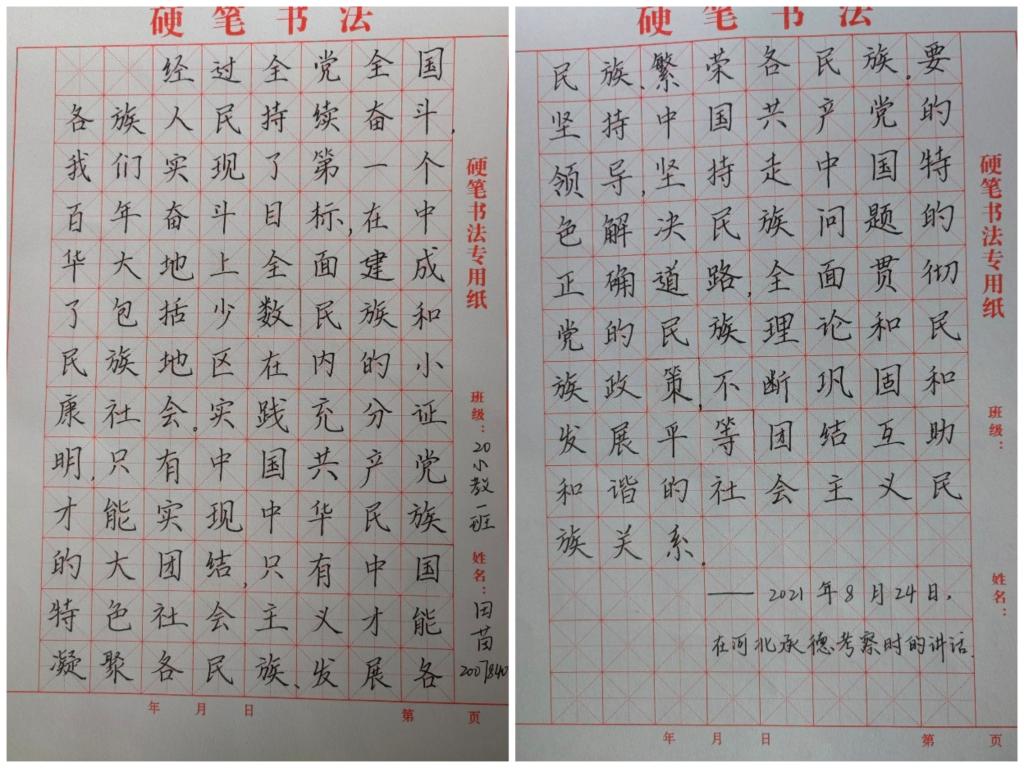 硬笔书法
经过全党全国
各族人民持续奋斗,
我们实现了第一个
百年奋斗目标,在中
华大地上全面建成
了包括少数民族和
民族地区在内的小
康社会。实践充分证
明,只有中国共产党
才能实现中华民族
的大团结,只有中国
特色社会主义才能
凝聚各民族、发展各
年 月 日 第 页
硬笔书法专用纸
班级:20小教一班
姓名:田苗
硬笔书法
民族、繁荣各民族。要
坚持中国共产党的
领导,坚持走中国特
色解决民族问题的
正确道路,全面贯彻
党的民族理论和民
族政策,不断巩固和
发展平等团结互助
和谐的社会主义民
族关系.
—— 2021年8月24日,
在河北承德考察时的讲话.
年 月 日 第 页
硬笔书法专用纸
班级:
姓名: